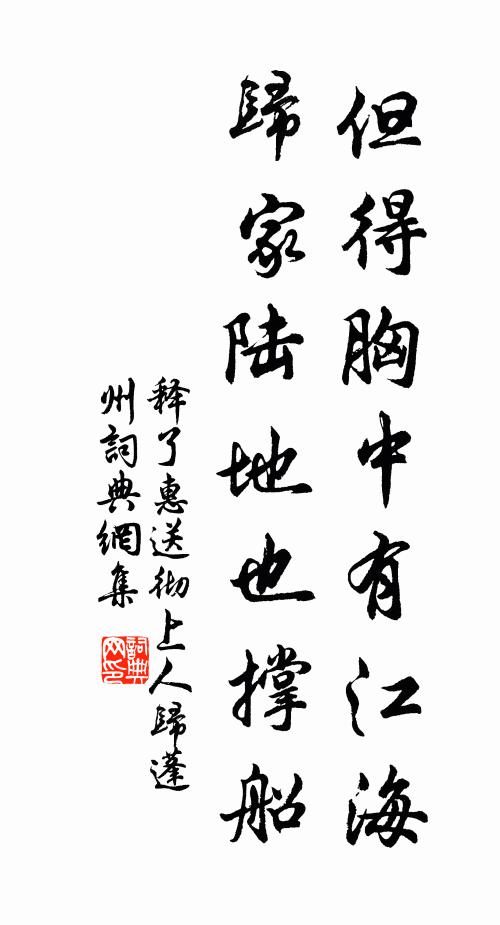 但得胸中有江海
歸家陆地也撑船
释了惠送彻上人歸蓬
州詞典網集
詞典
网印